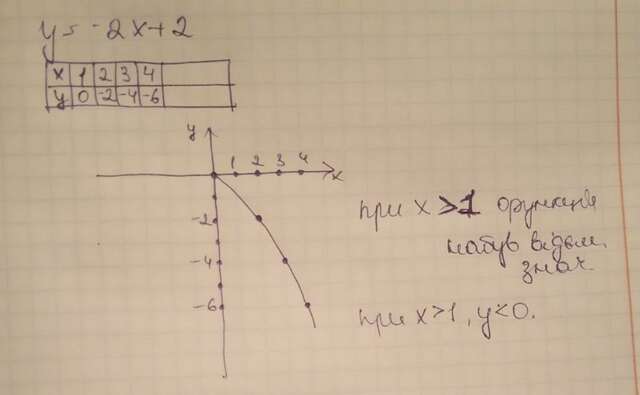 y = -2x+2
x 1 2 3 4
y 0 -2 -4 -6
y
1 2 3 4
x
-2
-4
-6
при x >1 функція
набув відєм.
знач
при x>1, y<0.